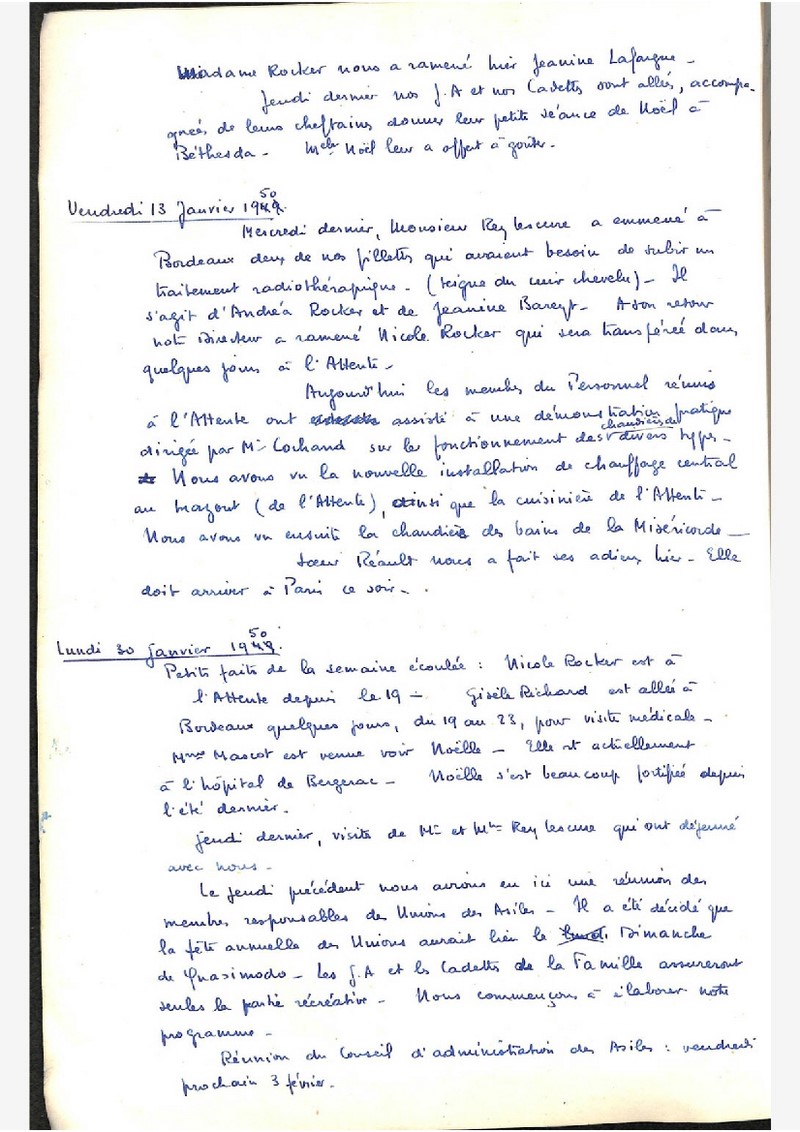 Madame Rocker nous a ramené hier Jeanine Lafargue -
Jeudi dernier nos J.A et nos Cadettes sont allées, accompa-
gnées de leurs cheftaines donner leur petite séance de Noël à
Béthesda - Melle Noël leur a offert à goûter -
Vendredi 13 Janvier 1950
Mercredi dernier, Monsieur Rey lescure a emmené à
Bordeaux deux de nos fillettes qui avaient besoin de subir un
traitement radiothérapique - (teigne du cuir chevelu) - Il
s'agit d'Andréa Rocker et de Jeanine Bareyt - A son retour
notre Directeur a ramené Nicole Rocker qui sera transférée dans
quelques jours à l'Attente -
Aujourd'hui les membres du Personnel réunis
à l'Attente ont assisté à une démonstration pratique
dirigée par Mr Cochand sur le fonctionnement des chaudières de divers types -
Nous avons vu la nouvelle installation de chauffage central
au mazout (de l'Attente), ainsi que la cuisinière de l'Attente -
Nous avons vu ensuite la chaudière des bains de la Miséricorde -
Soeur Réault nous a fait ses adieux hier - Elle
doit arriver à Paris ce soir -
Lundi 30 Janvier 1950
Petits faits de la semaine écoulée : Nicole Rocker est à
l'Attente depuis le 19 - Gisèle Richard est allée à
Bordeaux quelques jours, du 19 au 23, pour visite médicale -
Mme Mascot est venue voir Noëlle - Elle est actuellement
à l'hôpital de Bergerac - Noëlle s'est beaucoup fortifiée depuis
l'été dernier -
Jeudi dernier, visite de Mr et Mme Rey lescure qui ont déjeuné
avec nous -
Le jeudi précédent nous avions eu ici une réunion des
membres responsables des Unions des Asiles - Il a été décidé que
la fête annuelle des Unions aurait lieu le Dimanche
de Quasimodo - Les J.A et les Cadettes de la Famille assureront
seules la partie récréative - Nous commençons à élaborer notre
programme -
Réunion du Conseil d'administration des Asiles : vendredi
prochain 3 février -